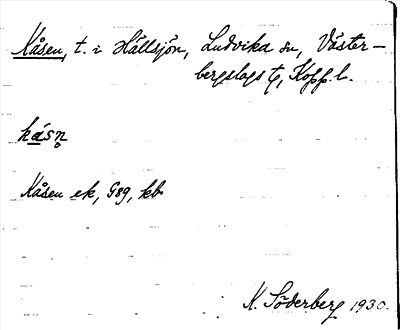 Kåsen, t. i Hällsjön, Ludvika sn, Väster-
bergslags tg, Kopp. l.
kåsn̥
Kåsen ek, G89, kb
K. Söderberg 1930.